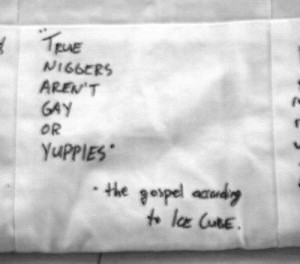 "TRUE
NIGGERS
AREN'T
GAY
OR
YUPPIES"
- the gospel according
to ICE CUBE.